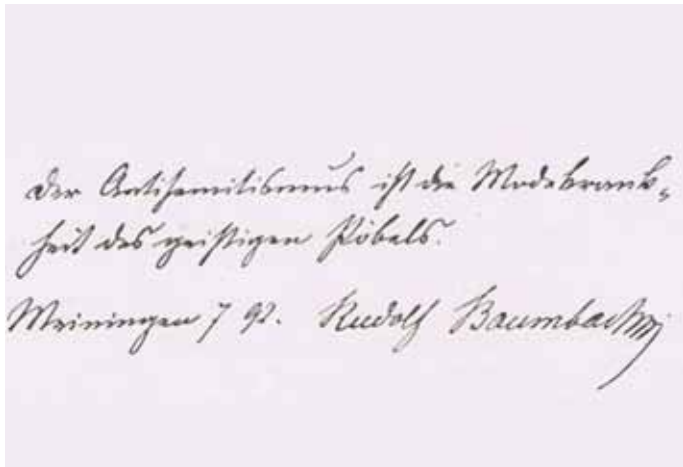 Der Antisemitismus ist die Modekrank-
heit des geistigen Pöbels.
Meiningen 7 92. Rudolf Baumbach